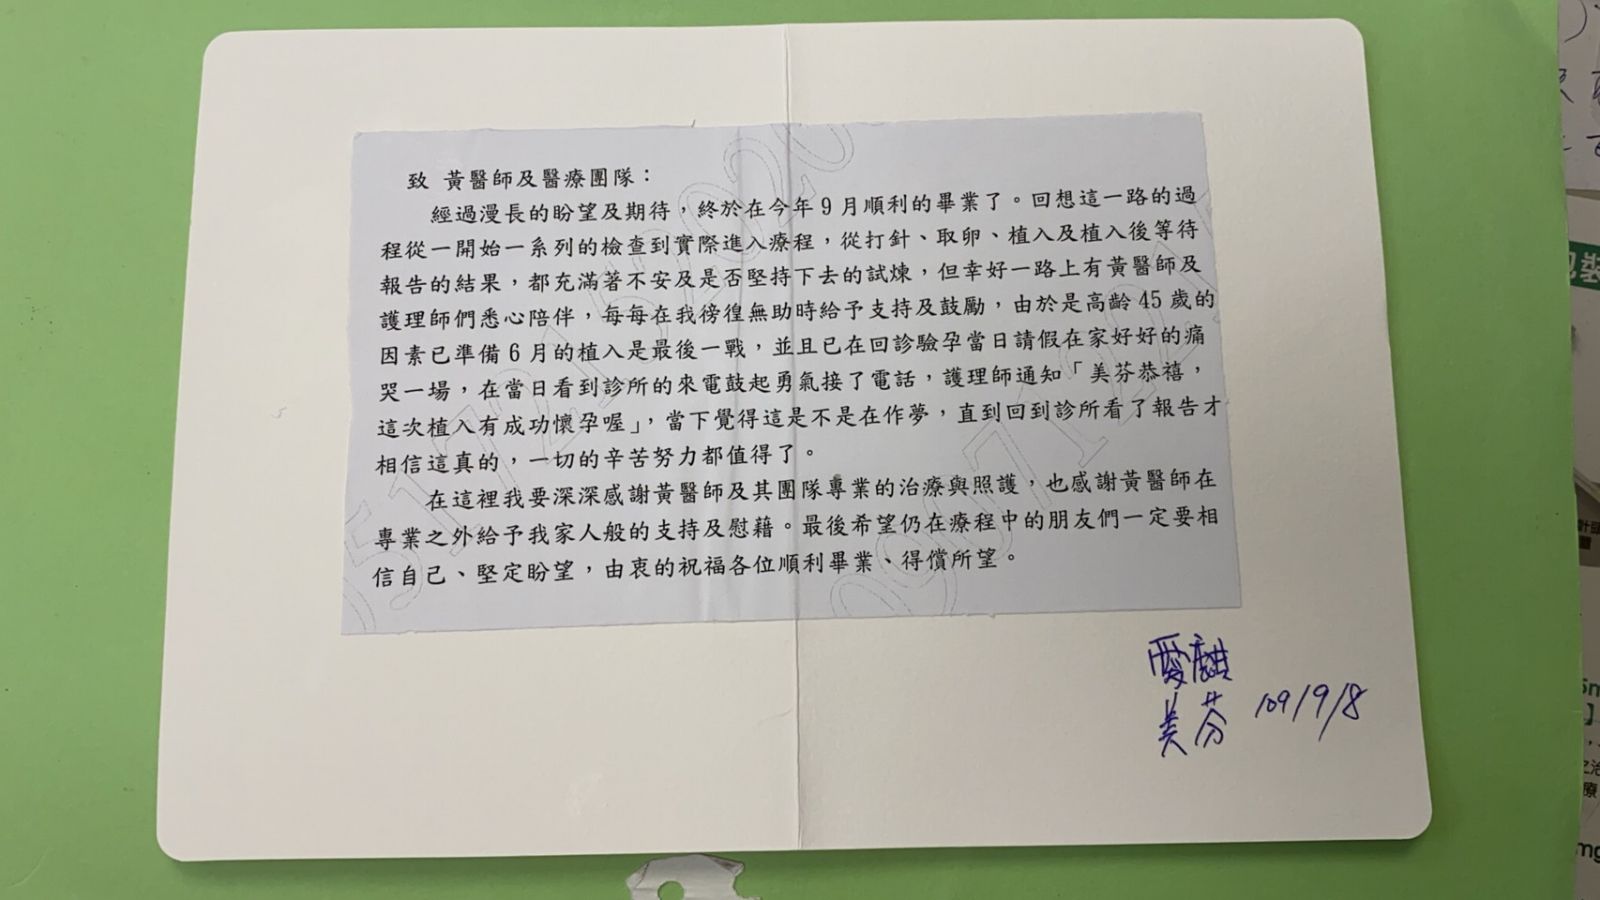 致 黃醫師及醫療團隊：
經過漫長的盼望及期待，終於在今年9月順利的畢業了。回想這一路的過
程從一開始一系列的檢查到實際進入療程，從打針、取卵、植入及植入後等待
報告的結果，都充滿著不安及是否堅持下去的試煉，但幸好一路上有黃醫師及
護理師們悉心陪伴，每每在我徬徨無助時給予支持及鼓勵，由於是高齡45歲的
因素已準備6月的植入是最後一戰，並且已在回診驗孕當日請假在家好好的痛
哭一場，在當日看到診所的來電鼓起勇氣接了電話，護理師通知「美芬恭禧，
這次植入有成功懷孕喔」，當下覺得這是不是在作夢，直到回到診所看了報告才
相信這真的，一切的辛苦努力都值得了。
在這裡我要深深感謝黃醫師及其團隊專業的治療與照護，也感謝黃醫師在
專業之外給予我家人般的支持及慰藉。最後希望仍在療程中的朋友們一定要相
信自己、堅定盼望，由衷的祝福各位順利畢業、得償所望。
美芬 109/9/8
包裝
5m
之治
療
mg